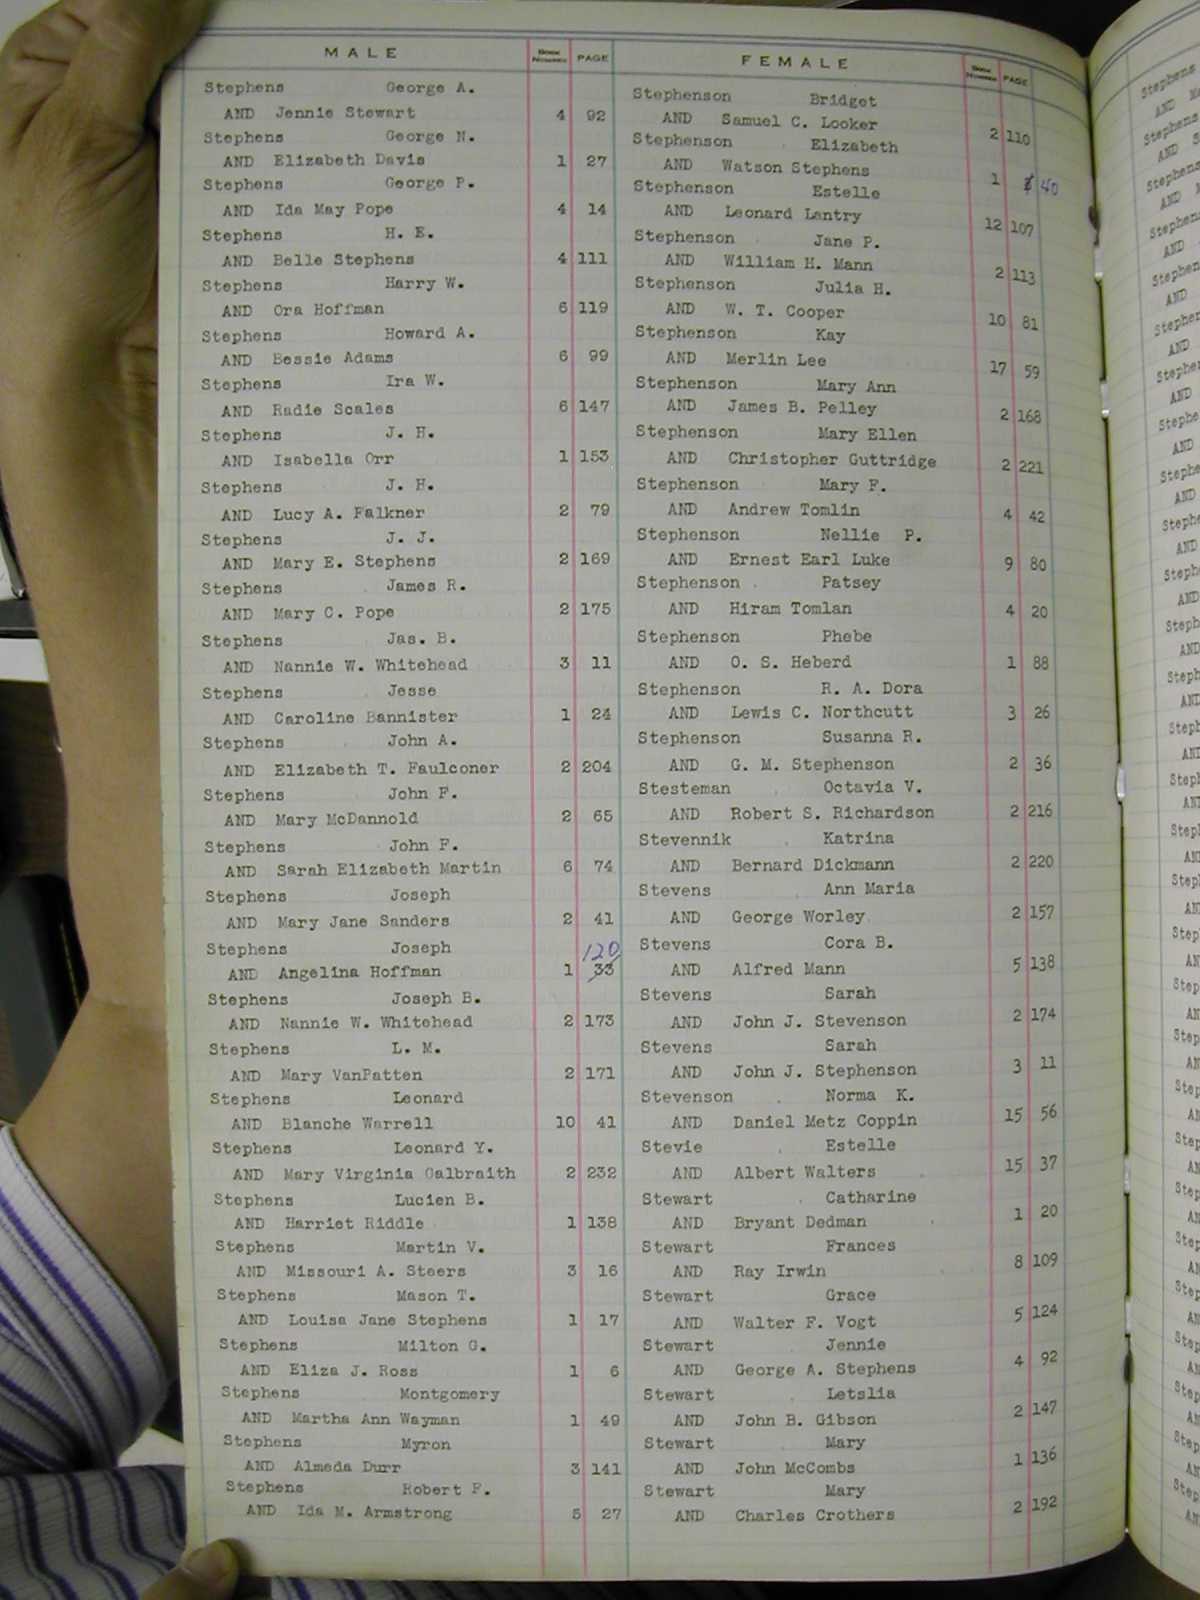 MALE BOOK NUMBER PAGE
Stephens George A.
AND Jennie Stewart 4 92
Stephens George N.
AND Elizabeth Davis 1 27
Stephens George P.
AND Ida May Pope 4 14
Stephens H. E.
AND Belle Stephens 4 111
Stephens Harry W.
AND Ora Hoffman 6 119
Stephens Howard A.
AND Bessie Adams 6 99
Stephens Ira W.
AND Radie Scales 6 147
Stephens J. H.
AND Isabella Orr 1 153
Stephens J. H.
AND Lucy A. Falkner 2 79
Stephens J. J.
AND Mary E. Stephens 2 169
Stephens James R.
AND Mary C. Pope 2 175
Stephens Jas. B.
AND Nannie W. Whitehead 3 11
Stephens Jesse
AND Caroline Bannister 1 24
Stephens John A.
AND Elizabeth T. Faulconer 2 204
Stephens John F.
AND Mary McDannold 2 65
Stephens John F.
AND Sarah Elizabeth Martin 6 74
Stephens Joseph
AND Mary Jane Sanders 2 41
Stephens Joseph 120
AND Angelina Hoffman 1 33
Stephens Joseph B.
AND Nannie W. Whitehead 2 173
Stephens L. M.
AND Mary VanPatten 2 171
Stephens Leonard
AND Blanche Warrell 10 41
Stephens Leonard Y.
AND Mary Virginia Galbraith 2 232
Stephens Lucien B.
AND Harriet Riddle 1 138
Stephens Martin V.
AND Missouri A. Steers 3 16
Stephens Mason T.
AND Louisa Jane Stephens 1 17
Stephens Milton G.
AND Eliza J. Ross 1 6
Stephens Montgomery
AND Martha Ann Wayman 1 49
Stephens Myron
AND Almeda Durr 3 141
Stephens Robert F.
AND Ida M. Armstrong 5 27
FEMALE BOOK NUMBER PAGE
Stephenson Bridget
AND Samuel C. Looker 2 110
Stephenson Elizabeth
AND Watson Stephens 1 40
Stephenson Estelle
AND Leonard Lantry 12 107
Stephenson Jane P.
AND William H. Mann 2 113
Stephenson Julia H.
AND W. T. Cooper 10 81
Stephenson Kay
AND Merlin Lee 17 59
Stephenson Mary Ann
AND James B. Pelley 2 168
Stephenson Mary Ellen
AND Christopher Guttridge 2 221
Stephenson Mary F.
AND Andrew Tomlin 4 42
Stephenson Nellie P.
AND Ernest Earl Luke 9 80
Stephenson Patsey
AND Hiram Tomlan 4 20
Stephenson Phebe
AND O. S. Heberd 1 88
Stephenson R. A. Dora
AND Lewis C. Northcutt 3 26
Stephenson Susanna R.
AND G. M. Stephenson 2 36
Stesteman Octavia V.
AND Robert S. Richardson 2 216
Stevennik Katrina
AND Bernard Dickmann 2 220
Stevens Ann Maria
AND George Worley 2 157
Stevens Cora B.
AND Alfred Mann 5 138
Stevens Sarah
AND John J. Stevenson 2 174
Stevens Sarah
AND John J. Stephenson 3 11
Stevenson Norma K.
AND Daniel Metz Coppin 15 56
Stevie Estelle
AND Albert Walters 15 37
Stewart Catharine
AND Bryant Dedman 1 20
Stewart Frances
AND Ray Irwin 8 109
Stewart Grace
AND Walter F. Vogt 5 124
Stewart Jennie
AND George A. Stephens 4 92
Stewart Letslia
AND John B. Gibson 2 147
Stewart Mary
AND John McCombs 1 136
Stewart Mary
AND Charles Crothers 2 192